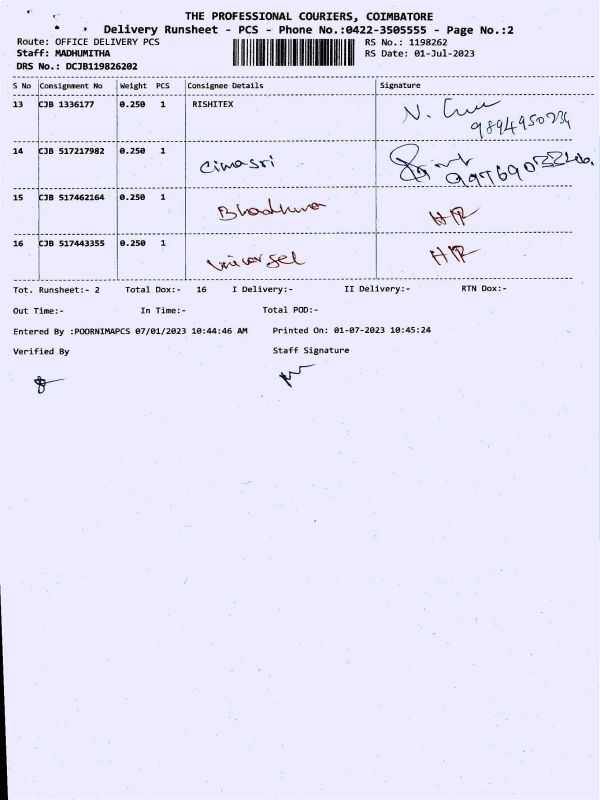 THE PROFESSIONAL COURIERS, COIMBATORE
Delivery Runsheet - PCS - Phone No.:0422-3505555 - Page No.:2
Route: OFFICE DELIVERY PCS RS No.: 1198262
Staff: MADHUMITHA RS Date: 01-Jul-2023
DRS No.: DCJB119826202
S No Consignment No Weight PCS Consignee Details Signature
13 CJB 1336177 0.250 1 RISHITEX N.
9894950234
14 CJB 517217982 0.250 1 Cimasri
15 CJB 517462164 0.250 1
16 CJB 517443355 0.250 1
Tot. Runsheet:- 2 Total Dox:- 16 I Delivery:- II Delivery:- RTN Dox:-
Out Time:- In Time:- Total POD:-
Entered By :POORNIMAPCS 07/01/2023 10:44:46 AM Printed On: 01-07-2023 10:45:24
Verified By Staff Signature